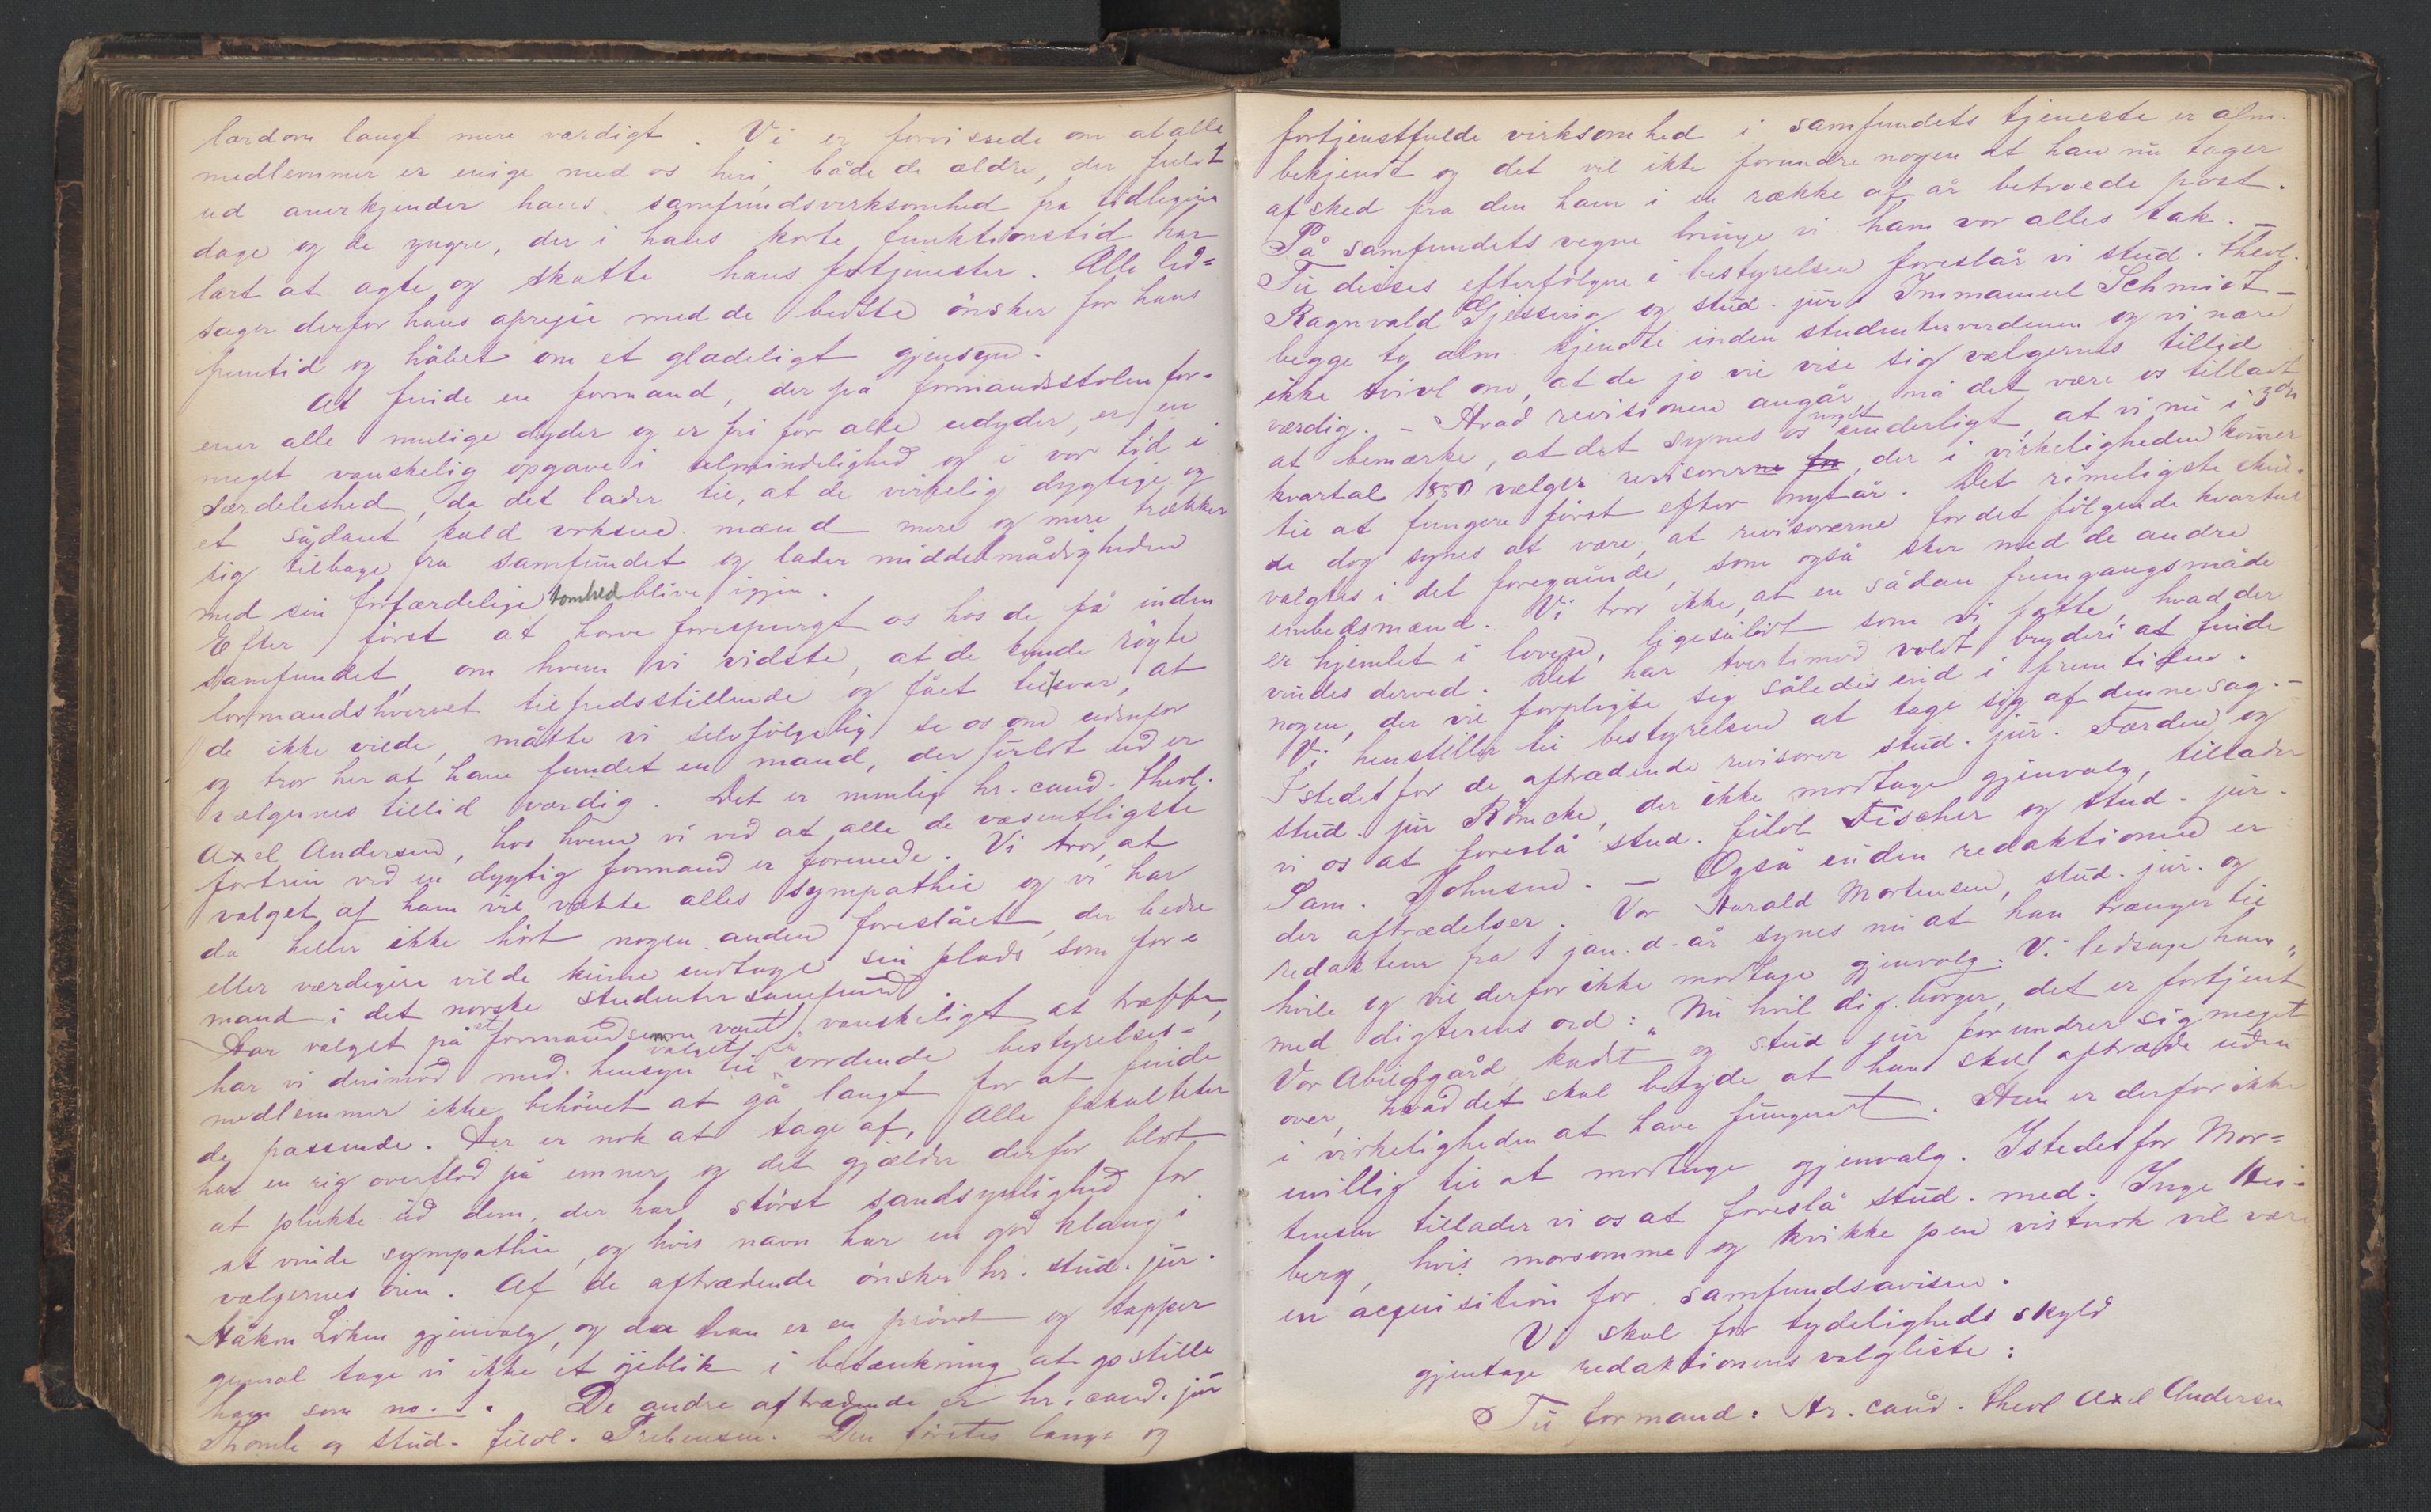 lærdom langt mere værdigt. Vi er forvissede om at alle
medlemmer er enige med os heri, både de ældre, der fuldt
ud anerkjender hans samfundsvirksomhed fra tidligere
dage og de yngre, der i hans korte funktionstid har
lært at agte og skatte hans fortjenester. Alle led-
sager derfor hans afreise med de bedste ønsker for hans
fremtid og håbet om et glædeligt gjensyn.
At finde en formand, der på formandsstolen for-
ener alle mulige dyder og er fri for alle udyder, er en
meget vanskelig opgave i almindelighed og i vor tid i
særdeleshed, da det lader til, at de virkelig dygtige og
et sådant kald voksne mænd mere og mere trækker
sig tilbage fra samfundet og lader middelmådigheden
med sin forfærdelige tomhed blive igjen.
Efter først at have forespurgt os hos de få inden
samfundet, om hvem vi vidste, at de kunde røgte
formandshvervet tilfredsstillende og fået til svar, at
de ikke vilde, måtte vi selvfølgelig se os om udenfor
og tror her at have fundet en mand, der fuldt ud er
vælgernes tillid værdig. Det er nemlig hr. cand. theol.
Axel Andersen, hos hvem vi ved at alle de væsentligste
fortrin ved en dygtig formand er forenede. Vi tror, at
valget af ham vil vække alles sympathie og vi har
da heller ikke hørt nogen anden foreslået, der bedre
eller værdigere vilde kunne indtage sin plads som for-
mand i det norske studentersamfund.
Har valget på et formandsemne været vanskeligt at træffe,
har vi derimod med hensyn til valget på vordende bestyrelses-
medlemmer ikke behøvet at gå langt for at finde
de passende. Der er nok at tage af, Alle fakulteter
har en rig overflod på emner og det gjælder derfor blot
at plukke ud dem, der har størst sandsynlighed for
at vinde sympathie, og hvis navn har en god klang i
vælgernes øren. Af de aftrædende ønsker hr. stud. jur.
Håkon Löken gjenvalg, og da han er en prøvet og tapper
general tage vi ikke et øieblik i betænkning at opstille
ham som no. 1. De andre aftrædende er hr. cand. jur
Thomle og stud. filol. Prebensen. Den førstes lange og
fortjenstfulde virksomhed i samfundets tjeneste er alm.
bekjendt og det vil ikke forundre nogen at han nu tager
afsked fra den ham i en række af år betroede post.
På samfundets vegne bringe vi ham vor alles tak. –
Til disses efterfølgere i bestyrelsen foreslår vi stud. theol.
Ragnvald Gjessing og stud. jur. Immanuel Schmidt –
begge to alm. kjendte inden studenterverdenen og vi nære
ikke tvivl om, at de jo vil vise sig vælgernes tillid
værdig. – Hvad revisionen angår, må det være os tilladt
at bemærke, at det synes os noget underligt, at vi nu i 3die
kvartal 1880 vælger revisorerne for, der i virkeligheden kommer
til at fungere først efter nytår. Det rimeligste skul-
de dog synes at være, at revisorerne for det følgende kvartal
valgtes i det foregående, som også sker med de andre
embedsmænd. Vi tror ikke, at en sådan fremgangsmåde
er hjemlet i loven, ligesålidt som vi fatte, hvad der
vindes derved. Det har tvertimod voldt bryderi at finde
nogen, der vil forpligte sig således ind i fremtiden.
Vi henstiller til bestyrelsen at tage sig af denne sag. –
Istedetfor de aftrædende revisorer stud. jur. Færden og
stud. jur Römcke, der ikke modtage gjenvalg, tillader
vi os at foreslå stud. filol Fischer og stud. jur.
Sam. Johnsen. – Også inden redaktionen er
der aftrædelser. Vor Harald Mortensen, stud. jur. og
redakteur fra 1 jan. d. år synes nu at han trænger til
hvile og vil derfor ikke modtage gjenvalg. Vi ledsage ham
med digterens ord: „Nu hvil dig borger, det er fortjent"
Vor Abildgård, kadt og stud. jur forundrer sig meget
over, hvad det skal betyde at han skal aftræde uden
i virkeligheden at have fungeret. Han er derfor ikke
uvillig til at modtage gjenvalg. Istedetfor Mor-
tensen tillader vi os at foreslå stud. med. Inge Hei-
berg, hvis morsomme og kvikke pen vistnok vil være
en acquisition for samfundsavisen.
Vi skal for tydeligheds skyld
gjentage redaktionens valgliste:
Til formand: Hr. cand. theol Axel Andersen